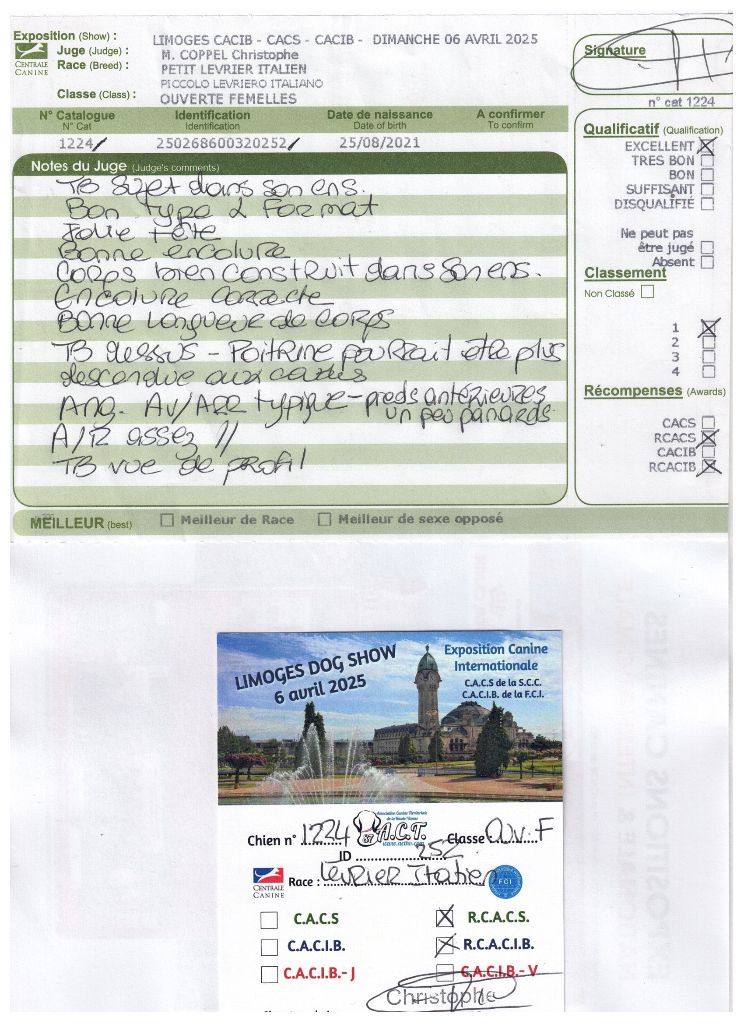 Exposition (Show) : LIMOGES CACIB - CACS - CACIB - DIMANCHE 06 AVRIL 2025
Juge (Judge) : M. COPPEL Christophe
CENTRALE CANINE
Race (Breed) : PETIT LEVRIER ITALIEN
PICCOLO LEVRIERO ITALIANO
Classe (Class) : OUVERTE FEMELLES
Signature
n° cat 1224
N° Catalogue Identification Date de naissance A confirmer
N° Cat Identification Date of birth To confirm
1224 250268600320252 25/08/2021
Notes du Juge (Judge's comments)
TB sujet dans son ens.
Bon type & Format
Jolie tête
Bonne encolure
Corps bien construit dans son ens.
Encolure correcte
Bonne longueur de corps
TB dessus - Poitrine pourrait être plus
descendue aux coudes
Ang. AV/ARR typique - pieds antérieures
un peu panards
A/R assez //
TB vue de profil
Qualificatif (Qualification)
EXCELLENT
TRES BON
BON
SUFFISANT
DISQUALIFIÉ
Ne peut pas
être jugé
Absent
Classement
Non Classé
1
2
3
4
Récompenses (Awards)
CACS
RCACS
CACIB
RCACIB
MEILLEUR (best) Meilleur de Race Meilleur de sexe opposé
LIMOGES DOG SHOW
6 avril 2025
Exposition Canine
Internationale
C.A.C.S de la S.C.C.
C.A.C.I.B. de la F.C.I.
Association Canine Territoriale
de la Haute Vienne
87 A.C.T.
Chien n° 1224 Classe Ouv. F
ID 252
CENTRALE CANINE
Race : Levrier Italien
FCI
C.A.C.S R.C.A.C.S.
C.A.C.I.B. R.C.A.C.I.B.
C.A.C.I.B.- J C.A.C.I.B.- V
Christophe
EXPOSITIONS CANINES